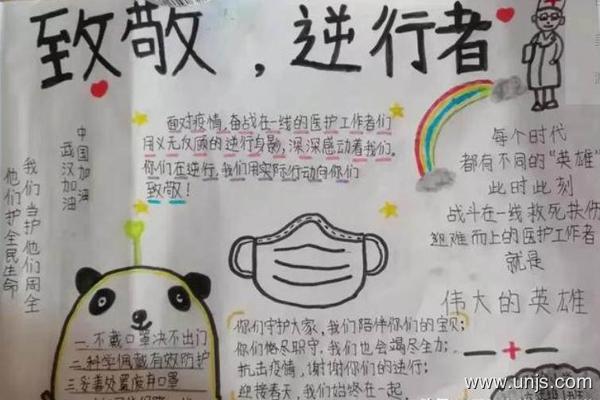 致敬，逆行者
面对疫情，奋战在一线的医护工作者们
用义无反顾的逆行身影，深深感动着我们。
你们在逆行，我们用实际行动向你们
致敬！
他们护全民生命
我们当护他们周全
武汉加油
中国加油
每个时代
都有不同的"英雄"
此时此刻
战斗在一线救死扶伤
艰难而上的医护工作者
就是
伟大的英雄
一.不戴口罩决不出门
二.科学佩戴有效防护
三.妥善处置废弃口罩
你们守护大家，我们陪伴你们的宝贝；
你们恪尽职守，我们也会竭尽全力；
抗击疫情，谢谢你们的逆行；
迎接春天，我们始终在一起
www.unjs.com